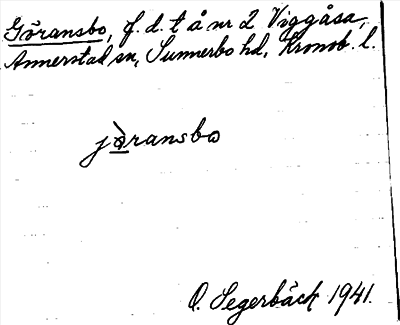 Göransbo, f. d. t å nr 2 Viggåsa,
Annerstad sn, Sunnerbo hd, Kronob. l.
jòransbo
O. Segerbäck 1941.